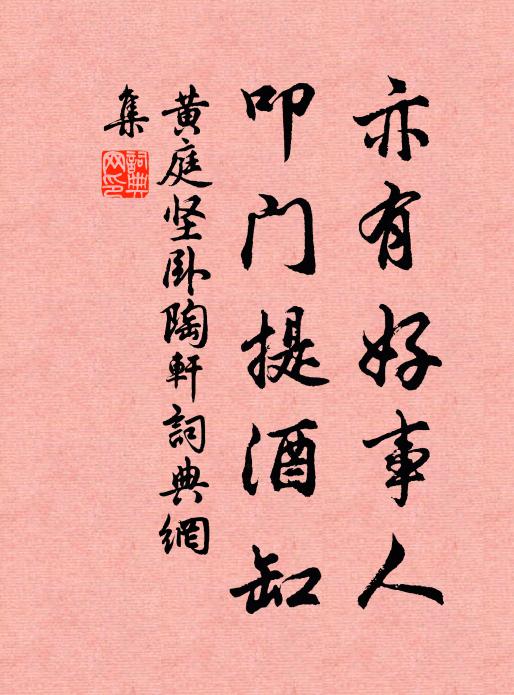 亦有好事人
叩门提酒缸
黄庭坚卧陶軒詞典網
集
詞典
网印